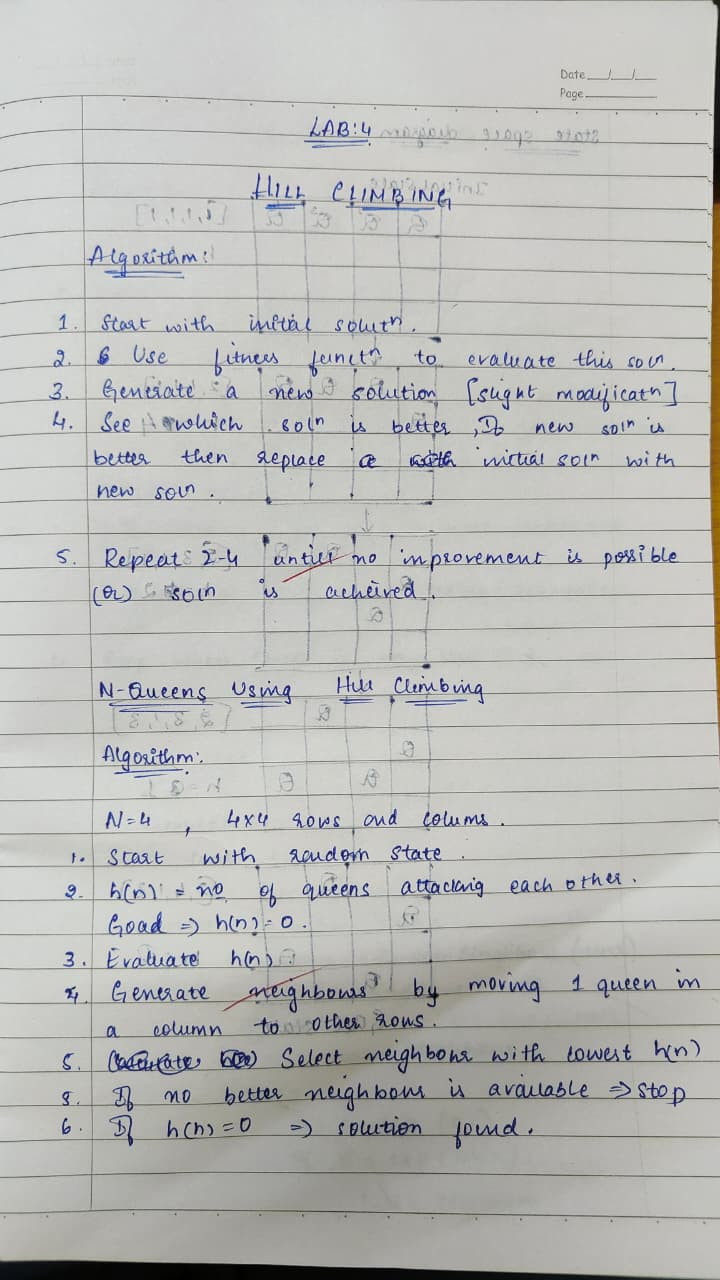 Date __/__/__
Page
LAB:4
HILL CLIMBING
Algorithm:
1. Start with initial solutn.
2. Use fitness functn to evaluate this soln.
3. Generate a new solution [slight modificatn]
4. See which soln is better, If new soln is
better then replace initial soln with
new soln.
5. Repeat 2-4 until no improvement is possible
(or) soln is acheived.
N-Queens Using Hill Climbing
Algorithm:
N=4, 4x4 rows and colums.
1. Start with random state.
2. h(n) = no of queens attacking each other.
Goad => h(n) = 0.
3. Evaluate h(n)
4. Generate neighbours by moving 1 queen in
a column to other rows.
5. Select neighbour with lowest h(n)
If no better neighbour is available => stop
6. If h(n) = 0 => solution found.